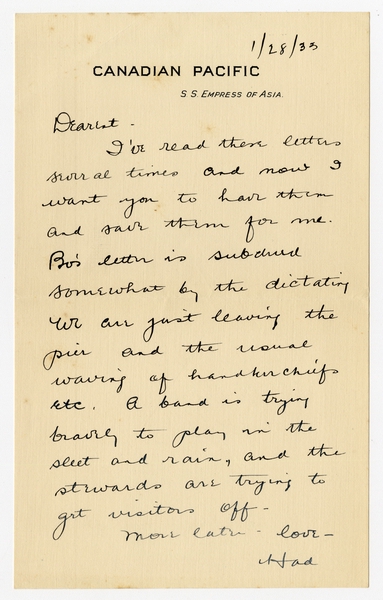 1/28/33
CANADIAN PACIFIC
S.S. EMPRESS OF ASIA.
Dearest -
I've read these letters
several times and now I
want you to have them
and save them for me.
Bo's letter is subdued
somewhat by the dictating
We are just leaving the
pier and the usual
waving of handkerchiefs
etc. A band is trying
bravely to play in the
sleet and rain, and the
stewards are trying to
get visitors off -
More later - love -
Had